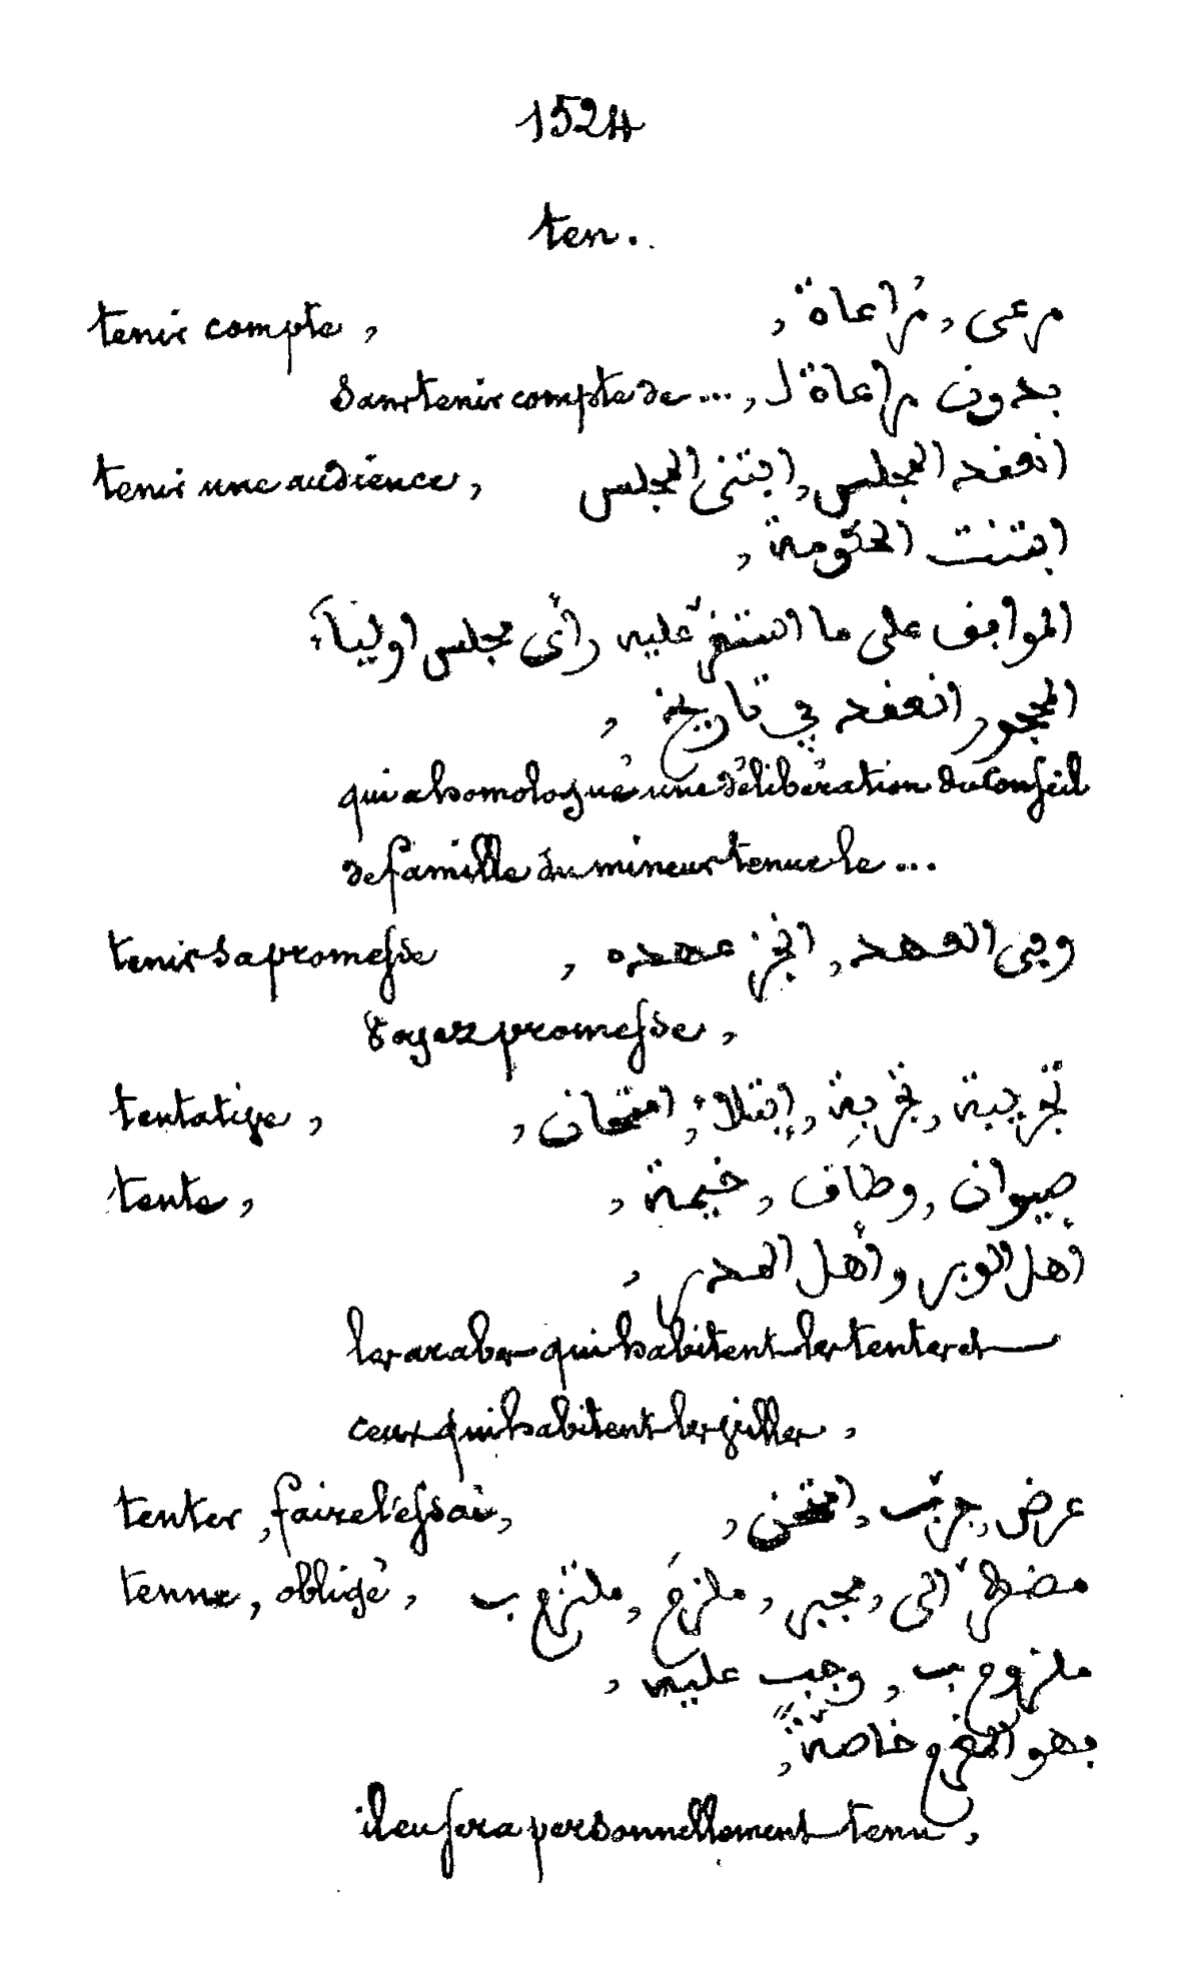 1524
ten.
tenir compte, مرعى, مُراعاة,
بدون مراعاة ل, sans tenir compte de ...
tenir une audience, انعفد المجلس, المجلس
الحكومة,
الموافف على ما استفرّ عليه رأى مجلس اولياء
المحجور انعفد في تاريخ,
qui a homologué une délibération du Conseil
de famille du mineur tenue le ...
tenir sa promesse وفى العهد, انجز عهده,
Voyez promesse,
tentative, تجريبة, تجربة, إبتلاء, امتحان,
tente, صيوان, وطاف, خيمة,
أهل الوبر وأهل المدر,
les arabes qui habitent les tentes et
ceux qui habitent les villes,
tenter, faire l'essai, عرض, جرّب, امتحن,
tenu, obligé, مضطرّ الى, مجبر, ملزَم, ملتزم ب
ملزوم ب, وجب عليه,
بهو المغرم خاصّةً,
il en sera personnellement tenu,